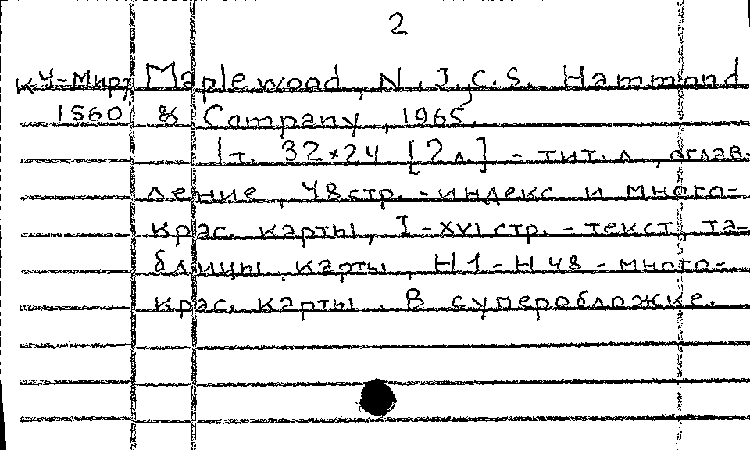 2
КУ-Мир, Maplewood, N.J.C.S. Hammond
1560 & Company, 1965.
1т. 32×24 [2л.] - тит. л, оглав-
ление, 48 стр. - индекс и много-
крас. карты, I-XVI стр. - текст, та-
блицы, карты, H1-H48 - много-
крас. карты. В суперобложке.